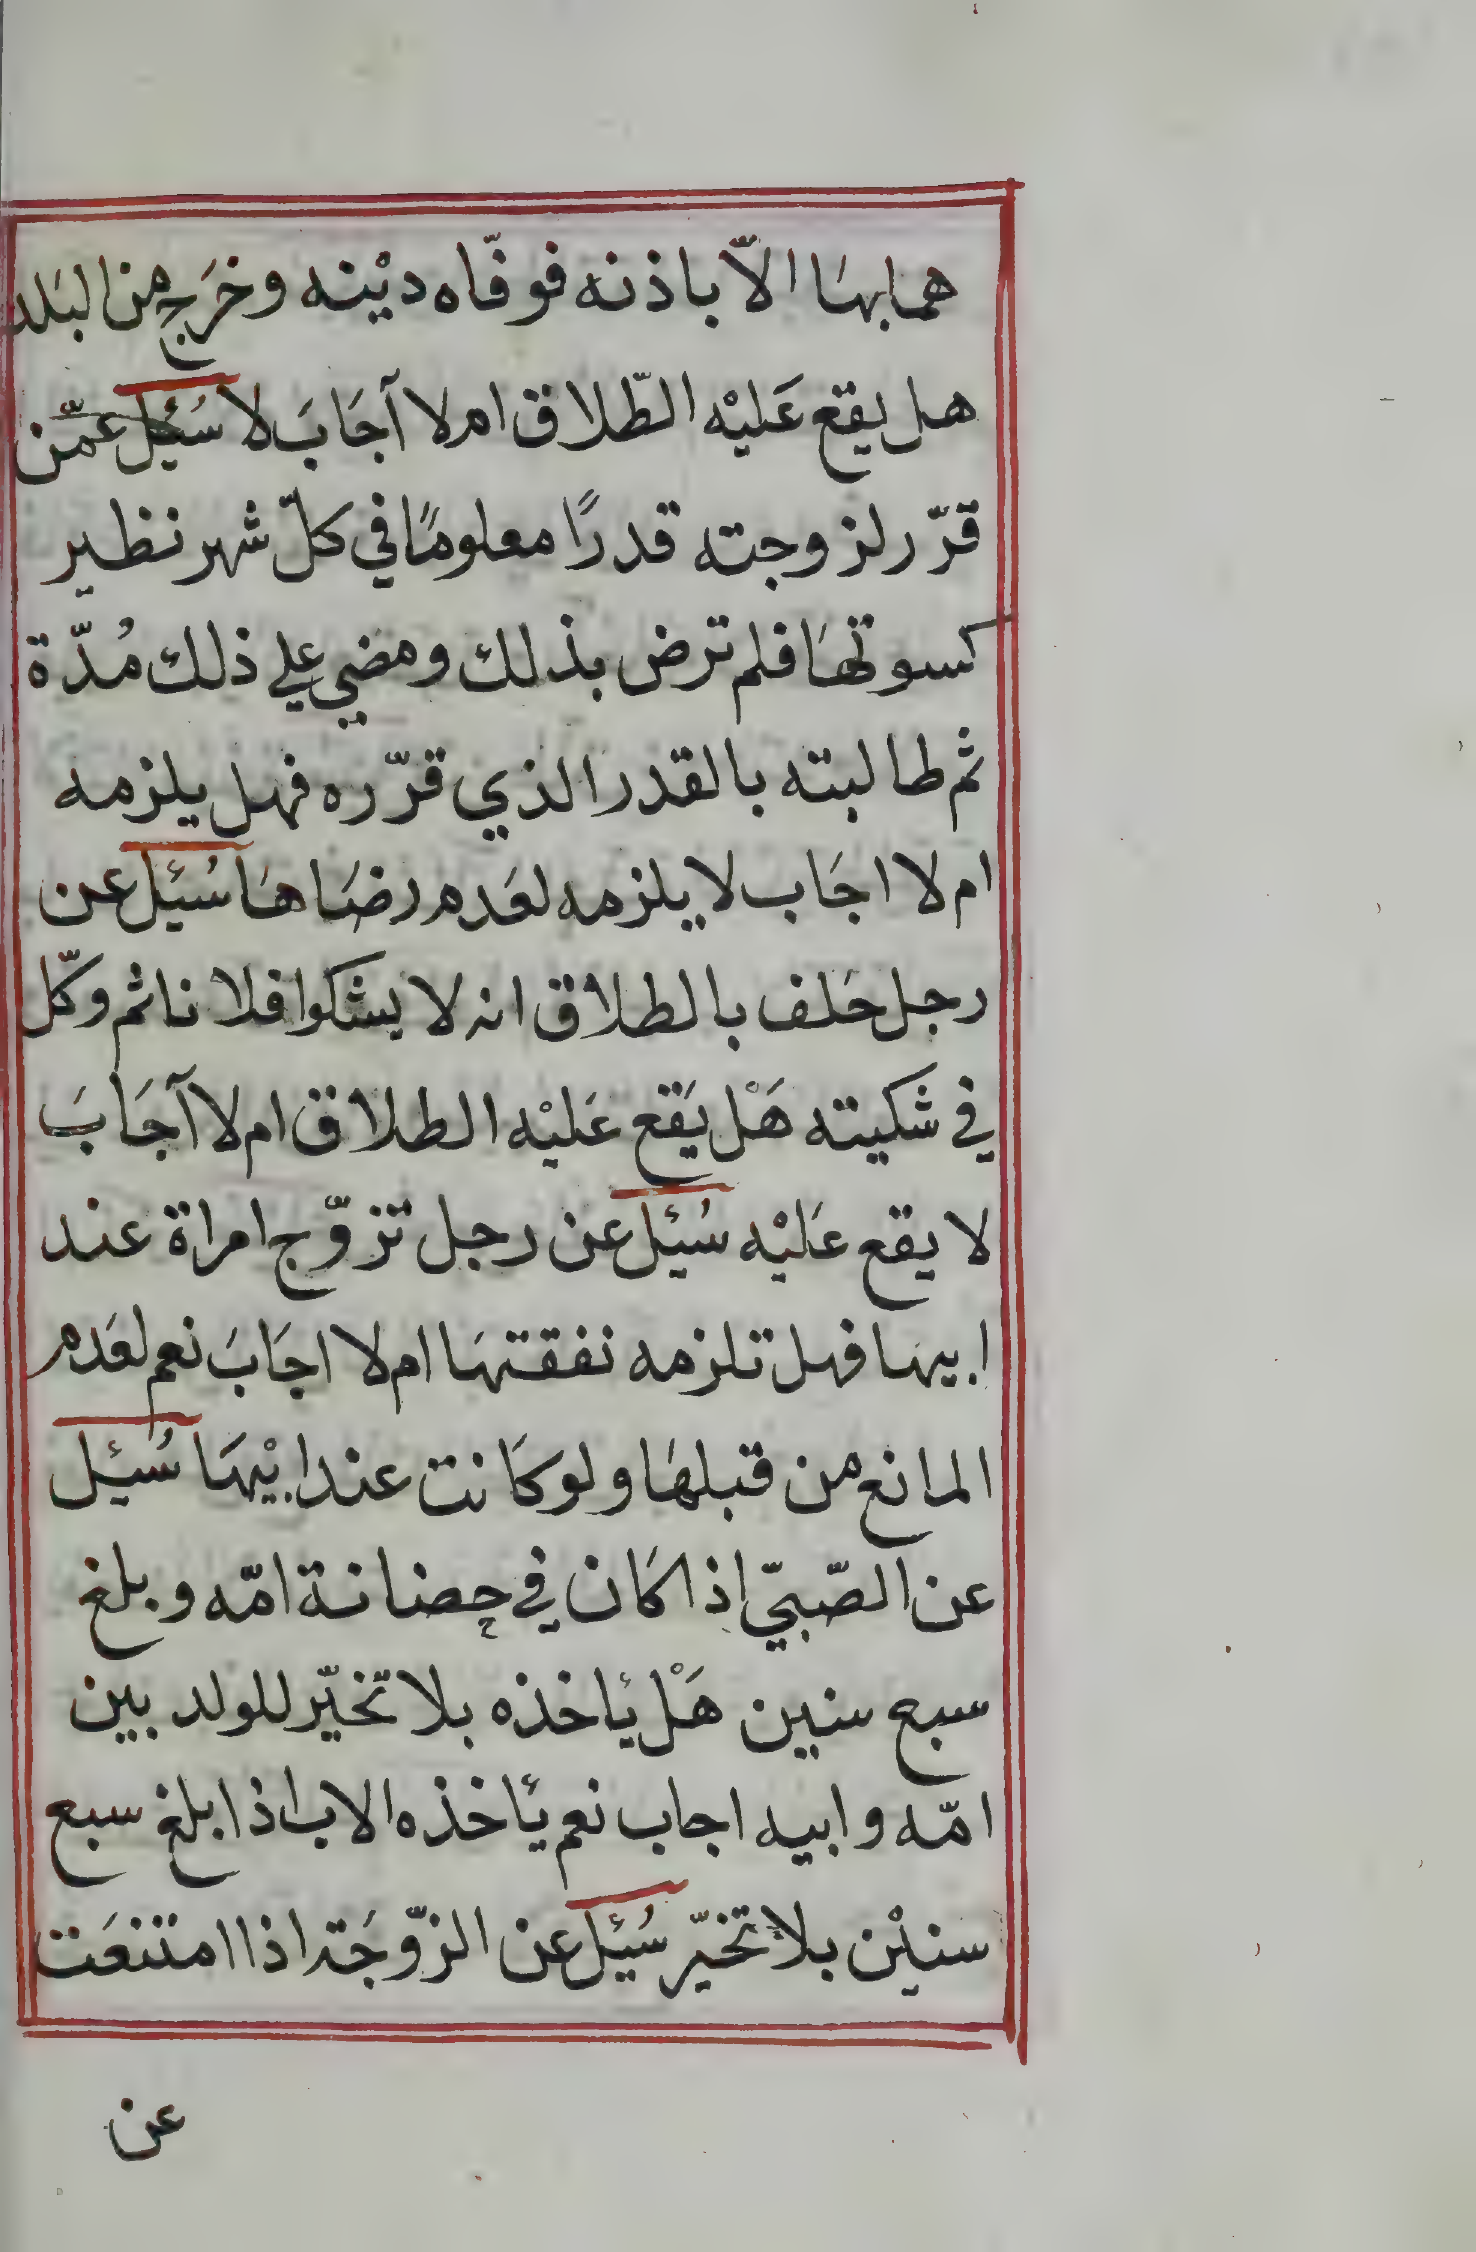 هما بهَا الاّ باذنه فوفّاه ديْنه وخرَج من البَلد
هل يقع عَليْه الطّلاق ام لا آجَابَ لا سُئِل عمّن
قرّر لزوجته قدرًا معلومًا في كلّ شهر نظير
كسوتهَا فلم ترض بذلك ومضي علي ذلك مُدّة
ثم طالبته بالقدر الذي قرّره فهل يلزمه
ام لا اجَاب لا يلزمه لعَدم رضَاهَا سُئِل عن
رجل حَلف بالطلاق انه لا يشكوا فلانا ثم وكّل
في شكيته هَلْ يَقع عَليْه الطلاق ام لا آجَابَ
لا يقع عَليْه سُئِل عن رجل تزوّج امراة عند
ابيها فهل تلزمه نفقتهَا ام لا اجَابَ نعم لعَدم
المانع من قبلهَا ولو كانت عند ابيْهَا سُئِل
عن الصّبيّ اذا كان في حضانة امّه وبلغ
سبع سنين هَلْ يأخذه بلا تخيّر للولد بين
امّه وابيه اجاب نعم يأخذه الاب اذا بلغ سبع
سنيْن بلا تخيّر سُئِل عن الزّوجَة اذا امتنعَت
عن